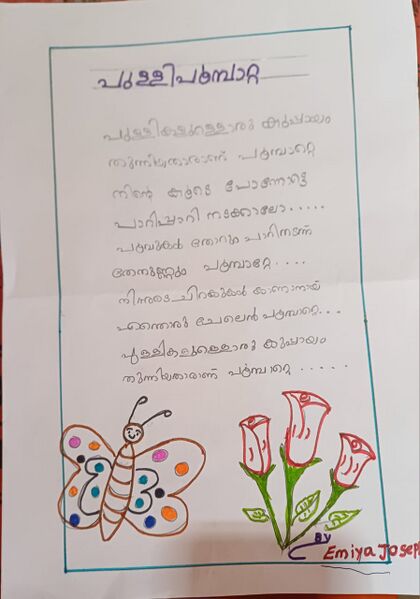 പുള്ളിപൂമ്പാറ്റ
പുള്ളികളുള്ളൊരു കുപ്പായം
തുന്നിയതാരാണ് പൂമ്പാറ്റെ
നിന്റെ കൂടെ പോന്നോട്ടെ
പാറിപ്പാറി നടക്കാലോ.....
പൂവുകൾ തോറും പാറിനടന്ന്
തേനുണ്ണും പൂമ്പാറ്റേ....
നിന്നുടെ ചിറകുകൾ കാണാനായ്
എന്തൊരു ചേലെൻ പൂമ്പാറ്റെ...
പുള്ളികളുള്ളൊരു കുപ്പായം
തുന്നിയതാരാണ് പൂമ്പാറ്റെ.....
By
Emiya Joseph